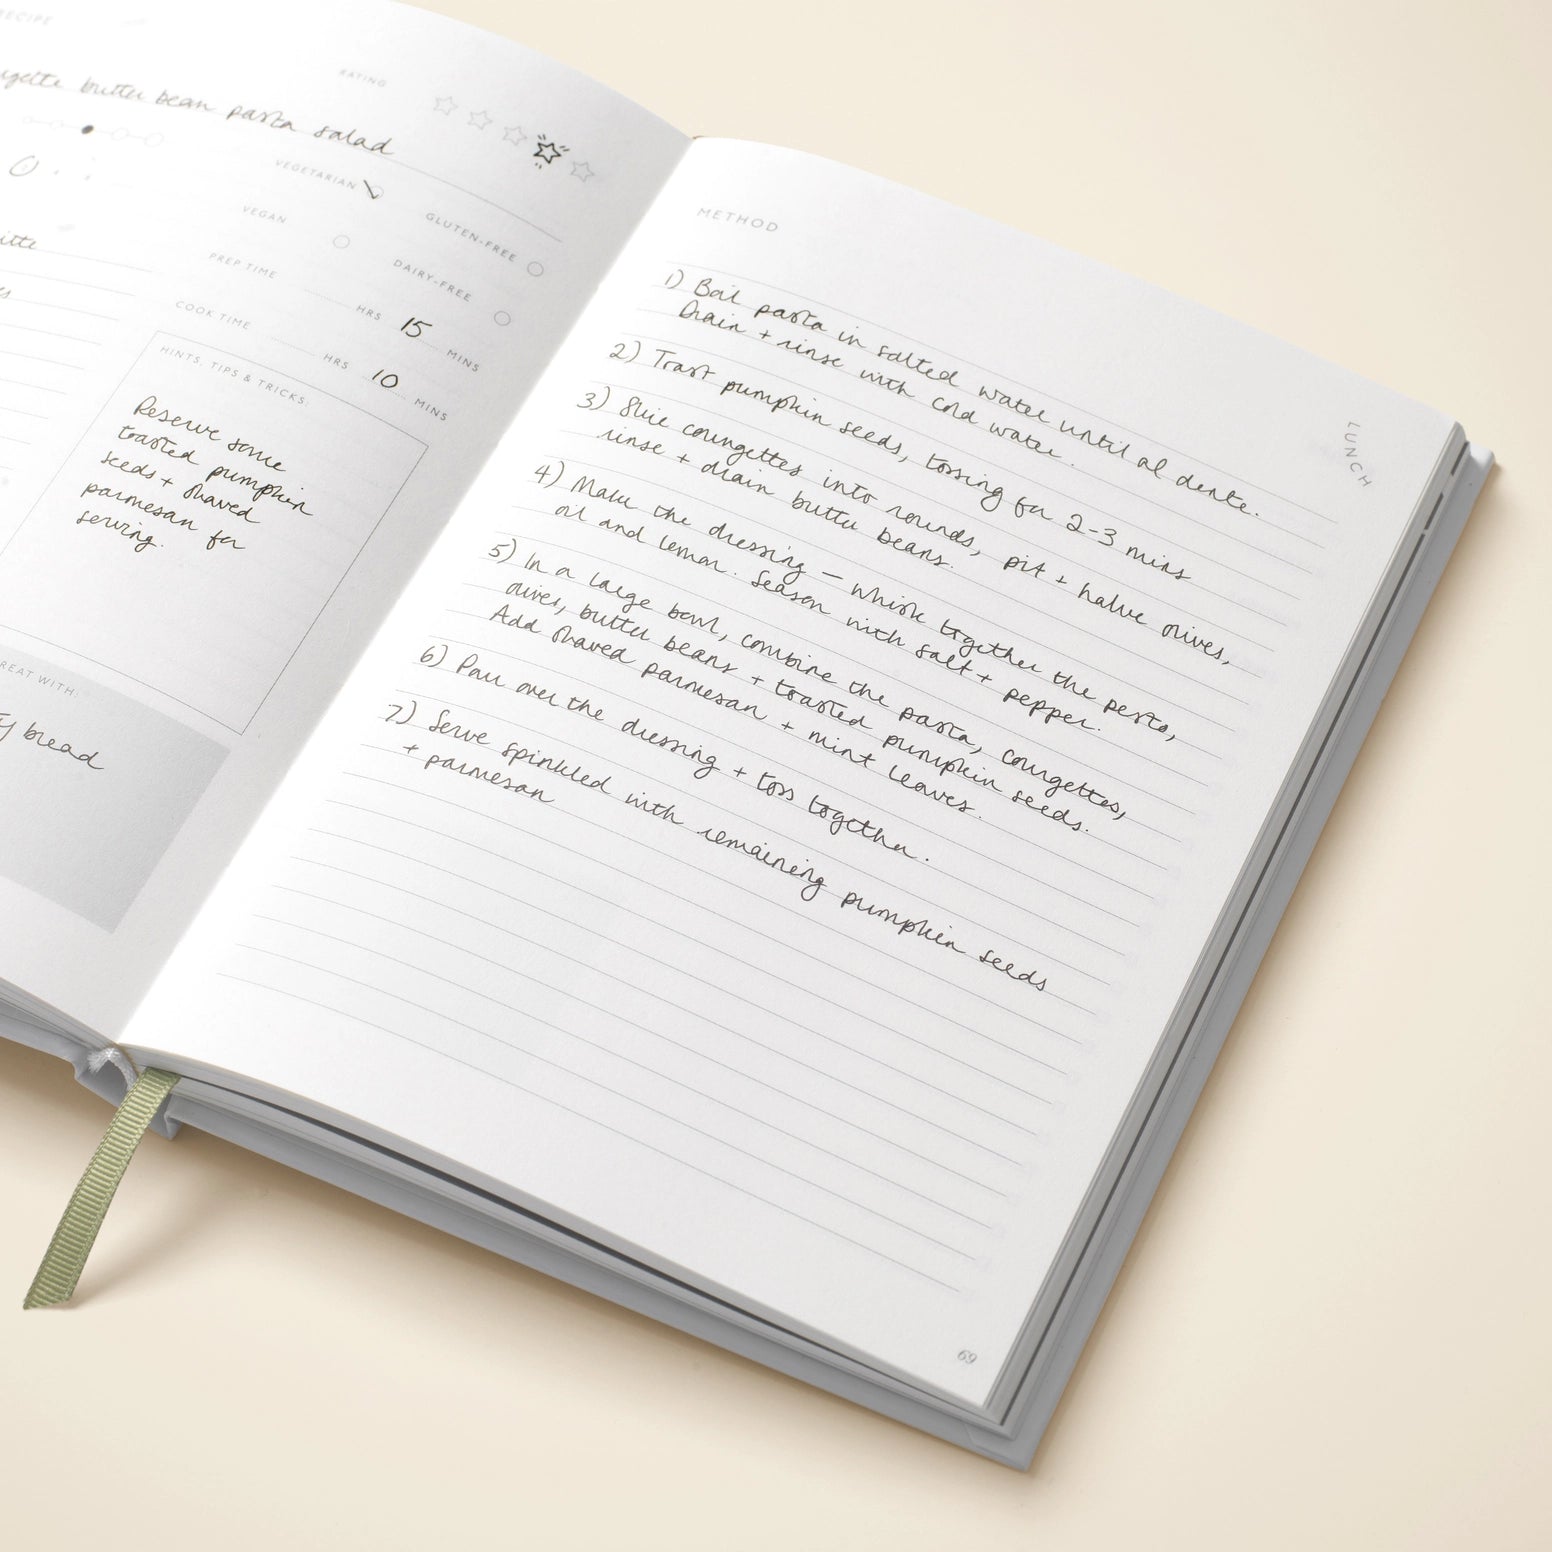 RECIPE
butter bean pasta salad
RATING
VEGETARIAN
GLUTEN-FREE
VEGAN
DAIRY-FREE
PREP TIME HRS 15 MINS
COOK TIME HRS 10 MINS
HINTS, TIPS & TRICKS:
Reserve some
toasted pumpkin
seeds + shaved
parmesan for
serving.
WITH:
bread
METHOD
1) Boil pasta in salted water until al dente.
Drain + rinse with cold water.
2) Toast pumpkin seeds, tossing for 2-3 mins
3) Slice courgettes into rounds, pit + halve olives,
rinse + drain butter beans.
4) Make the dressing — whisk together the pesto,
oil and lemon. Season with salt + pepper.
5) In a large bowl, combine the pasta, courgettes,
olives, butter beans + toasted pumpkin seeds.
Add shaved parmesan + mint leaves.
6) Pour over the dressing + toss together.
7) Serve spinkled with remaining pumpkin seeds
+ parmesan
LUNCH
69